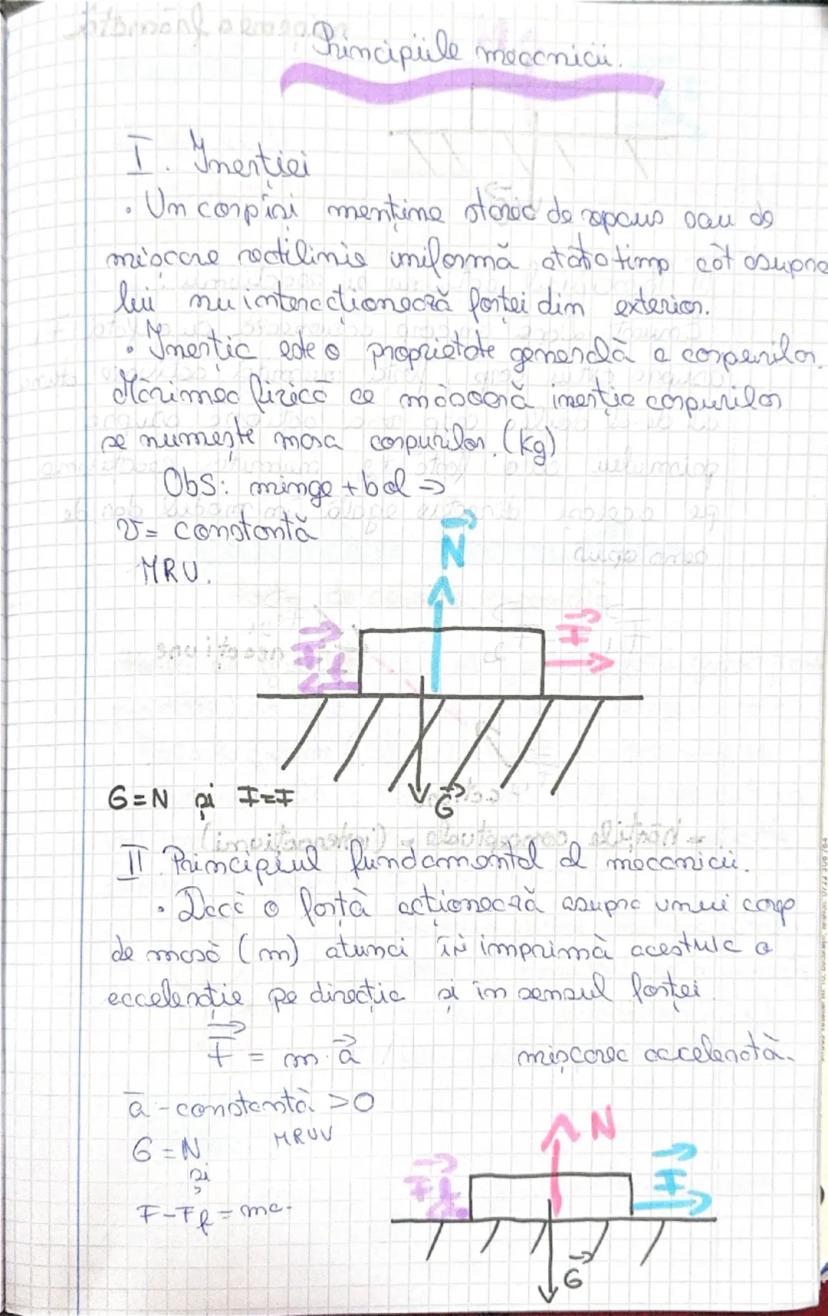 Principiile mecanicii.
I. Inerției
• Un corp își menține starea de repaus sau de
mișcare rectilinie uniformă atâta timp cât asupra
lui nu interacționează forței din exterior.
• Inerția este o proprietate generală a corpurilor.
Mărimea fizică ce măsoară inerția corpurilor
se numește masa corpurilor. (kg)
Obs: minge + bal ⇒
v = constantă
MRU.
N
F
Ff
G
G=N și F=F
II Principiul fundamental al mecanicii.
• Dacă o forță acționează asupra unui corp
de masă (m) atunci îi imprimă acestuia o
accelerație pe direcția și în sensul forței.
F = m · a mișcarea accelerată.
a - constantă > 0
G = N MRUV
și
F - Ff = ma.
N
F
Ff
G